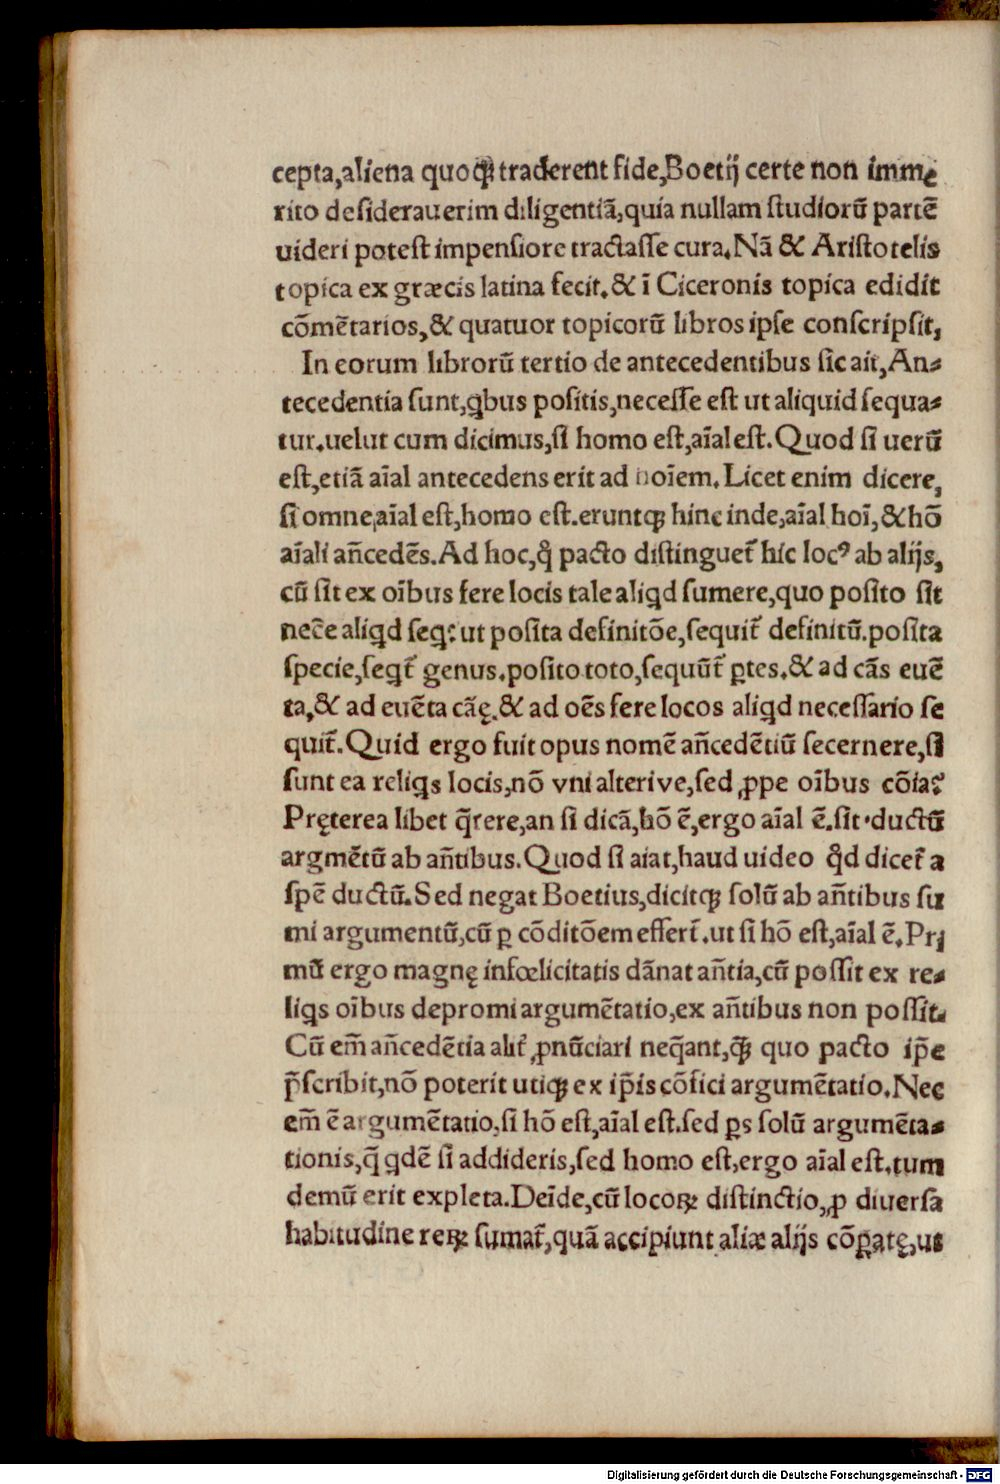 cepta,aliena quoqꝫ traderent fide,Boetij certe non immę
rito desiderauerim diligentiā,quia nullam studiorū partē
uideri potest impensiore tractasse cura.Nā & Aristotelis
topica ex græcis latina fecit.& ī Ciceronis topica edidit
cōmētarios,& quatuor topicorū libros ipse conscripsit,
In eorum librorū tertio de antecedentibus sic ait,An⸗
tecedentia sunt,qbus positis,necesse est ut aliquid sequa⸗
tur.uelut cum dicimus,si homo est,aīal est.Quod si uerū
est,etiā aīal antecedens erit ad hoīem.Licet enim dicere,
si omne,aīal est,homo est.eruntqꝫ hinc inde,aīal hoī,&hō
aīali añcedēs.Ad hoc,q̊ pacto distinguet̃ hic locꝰ ab alijs,
cū sit ex oībus fere locis tale aliqd sumere,quo posito sit
necē aliqd seq:ut posita definitōe,sequit̃ definitū.posita
specie,seqt̃ genus.posito toto,sequūt̃ ꝑtes.& ad cās euē
ta,& ad euēta cāę.& ad oēs fere locos aliqd necessario se
quit̃.Quid ergo fuit opus nomē añcedētiū secernere,si
sunt ea reliqs locis,nō vni alterive,sed ꝓpe oībus cōia?
Pręterea libet q̄rere,an si dicā,hō ē,ergo aīal ē.sit ductū
argmētū ab añtibus.Quod si aiat,haud uideo q̊d dicet̃ a
spē ductū.Sed negat Boetius,dicitqꝫ solū ab añtibus su
mi argumentū,cū ꝑ cōditōem effert̃.ut si hō est,aīal ē.Pri
mū ergo magnę infœlicitatis dānat añtia,cū possit ex re⸗
liqs oībus depromi argumētatio,ex añtibus non possit.
Cū em̄ añcedētia alit̃ ꝓnūciari neq̄ant,q̄ꝫ quo pacto ip̄e
p̄scribit,nō poterit utiqꝫ ex ip̄is cōfici argumētatio.Nec
em̄ ē argumētatio,si hō est,aīal est.sed ꝑs solū argumēta⸗
tionis,q̄ qdē si addideris,sed homo est,ergo aīal est.tum
demū erit expleta.Deīde,cū locoꝝ distinctio,ꝓ diuersa
habitudine reꝝ sumat̃,quā accipiunt aliæ alijs cōꝑatę,us
Digitalisierung gefördert durch die Deutsche Forschungsgemeinschaft - DFG